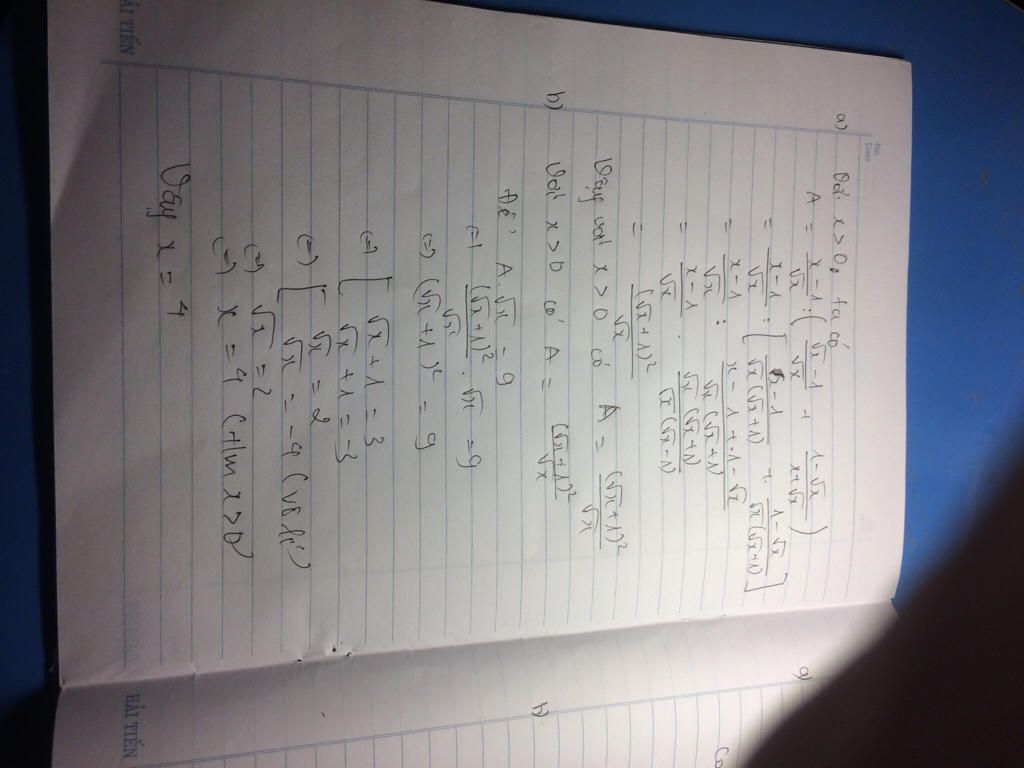 No.
Date
a) Với x > 0, ta có
A = \frac{x-1}{\sqrt{x}} : ( \frac{\sqrt{x}-1}{\sqrt{x}} + \frac{1-\sqrt{x}}{x+\sqrt{x}} )
= \frac{x-1}{\sqrt{x}} : [ \frac{x-1}{\sqrt{x}(\sqrt{x}+1)} + \frac{1-\sqrt{x}}{\sqrt{x}(\sqrt{x}+1)} ]
= \frac{x-1}{\sqrt{x}} : \frac{x-1+1-\sqrt{x}}{\sqrt{x}(\sqrt{x}+1)}
= \frac{x-1}{\sqrt{x}} . \frac{\sqrt{x}(\sqrt{x}+1)}{\sqrt{x}(\sqrt{x}-1)}
= \frac{(\sqrt{x}+1)^2}{\sqrt{x}}
Vậy với x > 0 có A = \frac{(\sqrt{x}+1)^2}{\sqrt{x}}
b) Với x > 0 có A = \frac{(\sqrt{x}+1)^2}{\sqrt{x}}
Để A.\sqrt{x} = 9
(=) \frac{(\sqrt{x}+1)^2}{\sqrt{x}} . \sqrt{x} = 9
(=) (\sqrt{x}+1)^2 = 9
(=) [ \sqrt{x}+1 = 3
\sqrt{x}+1 = -3
(=) [ \sqrt{x} = 2
\sqrt{x} = -4 (vô lí)
(=) \sqrt{x} = 2
(=) x = 4 (t/m x > 0)
Vậy x = 4
HẢI TIẾN
a)
Co
b)
HẢI TIẾN